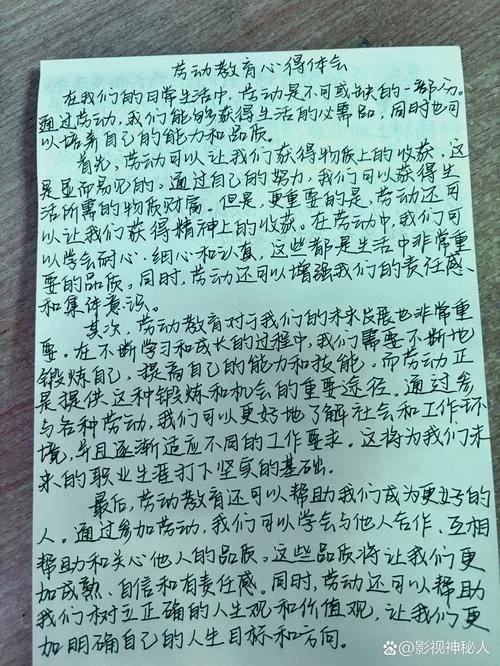 劳动教育心得体会
在我们的日常生活中，劳动是不可或缺的一部分。
通过劳动，我们能够获得生活的必需品，同时也可
以培养自己的能力和品质。
首先，劳动可以让我们获得物质上的收获，这
是显而易见的。通过自己的努力，我们可以获得生
活所需的物质财富。但是，更重要的是，劳动还可
以让我们获得精神上的收获。在劳动中，我们可
以学会耐心、细心和认真，这些都是生活中非常重
要的品质。同时，劳动还可以增强我们的责任感
和集体意识。
其次，劳动教育对于我们的未来发展也非常重
要。在不断学习和成长的过程中，我们需要不断地
锻炼自己，提高自己的能力和技能。而劳动正
是提供这种锻炼和机会的重要途径。通过参
与各种劳动，我们可以更好地了解社会和工作环
境，并且逐渐适应不同的工作要求。这将为我们未
来的职业生涯打下坚实的基础。
最后，劳动教育还可以帮助我们成为更好的
人。通过参加劳动，我们可以学会与他人合作、互相
帮助和关心他人的品质。这些品质将让我们更
加成熟、自信和有责任感。同时，劳动还可以帮助
我们树立正确的人生观和价值观，让我们更
加明确自己的人生目标和方向。
@影视神秘人